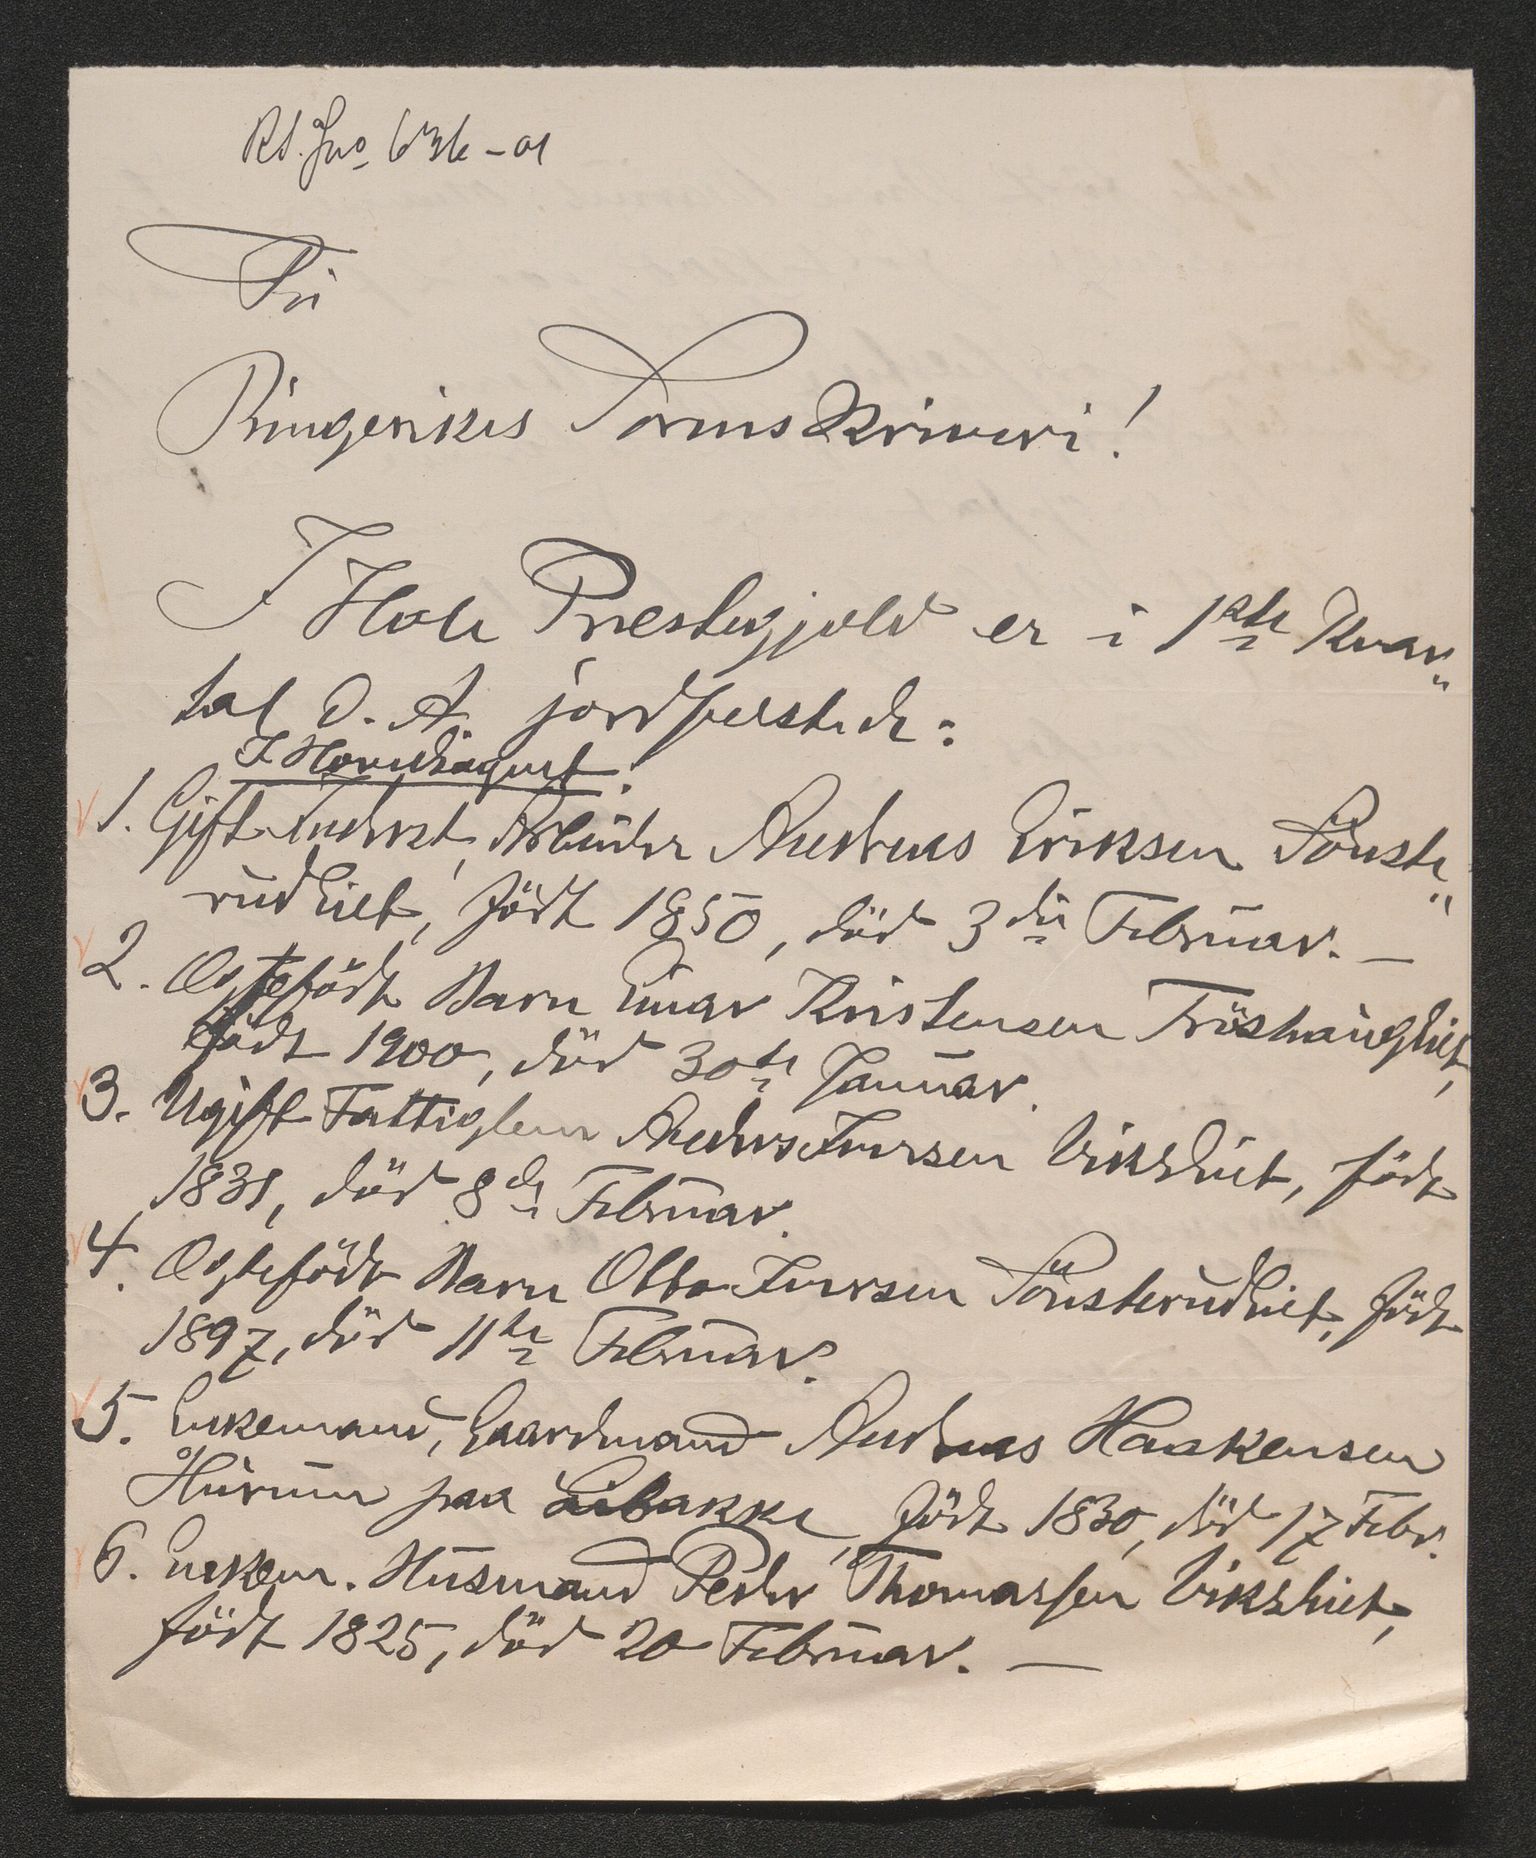 Rd. Jno 636-01
Til
Ringerikes Sorenskriveri!
I Hole Prestegjeld er i 1ste Kvar„
tal d. A. jordfæstede:
I Hovedsognet.
1. Gift Inderst, Arbeider Andreas Eriksen Sönste„
rudeiet, födt 1850, död 3die Februar. —
2. Ægtefödt Barn Einar Kristensen Tröshaugeiet,
födt 1900, död 30te Januar.
3. Ugift Fattiglem Anders Iversen Vikseiet, födt
1831, död 8de Februar.
4. Ægtefödt Barn Otto Iversen Sönsterudeiet, födt
1897, död 11te Februar.
5. Enkemand, Gaardmand Andreas Haakensen
Hurum paa Libakke, födt 1830, död 17 Febr.
6. Enkem. Husmand Peder Thomassen Vikseiet,
födt 1825, död 20 Februar. —